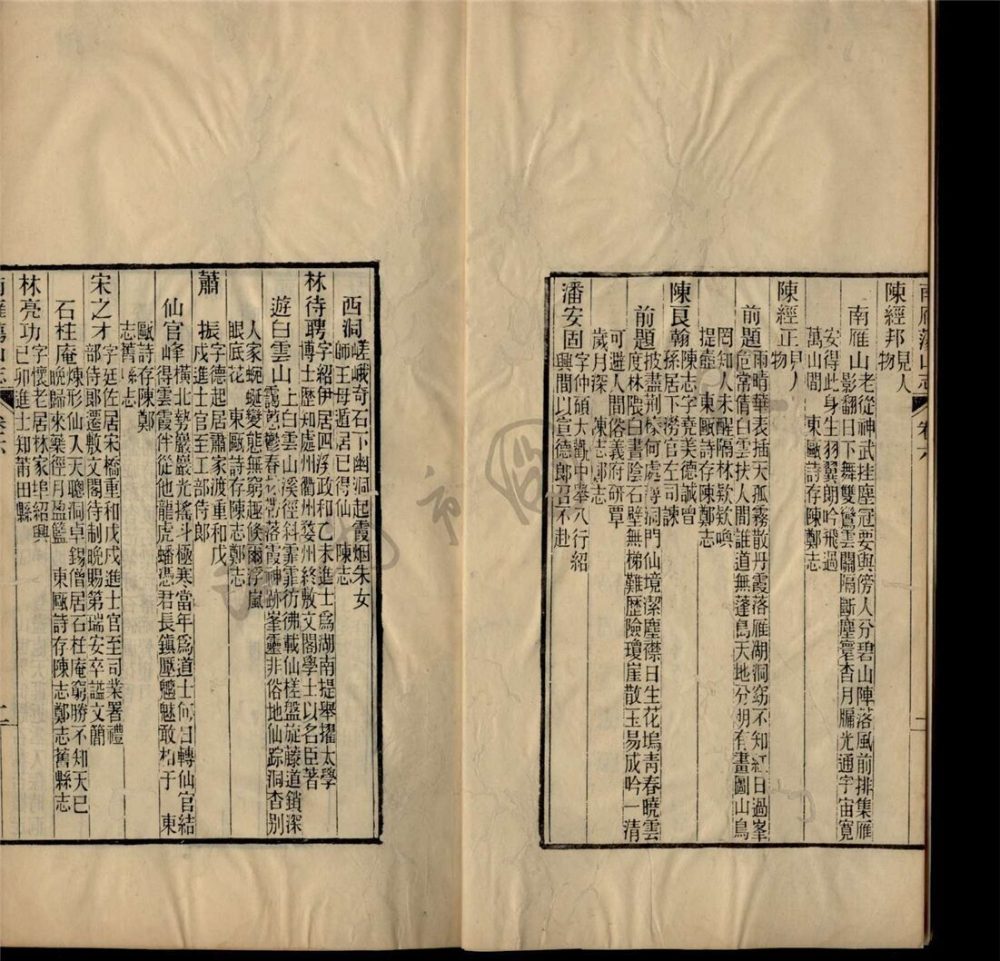 南雁蕩山志 卷六
陳經邦 見人物
南雁山 老從神武挂塵冠要與傍人分碧山陣落風前排集雁
影翻日下舞雙鸞雲關隔斷塵寰杳月牖光通宇宙寬
安得此身生羽翼朗吟飛過
萬山間 東甌詩存陳鄭志
陳經正 見人物
前題 雨晴華表插天孤霧散丹霞落雁湖洞窈不知紅日過峯
危常倩白雲扶人間誰道無蓬島天地分明有畫圖山鳥
罔知人未醒隔林欵欵喚
提壺 東甌詩存陳鄭志
陳良翰 陳志字堯美德誠曾
孫居下澇官左司諫
前題 披盡荆榛何處尋洞門仙境潔塵襟日生花塢青春曉雲
度林隈白晝陰石壁無梯難歷險瓊崖散玉易成吟一清
可避人間俗義府研覃
歲月深 陳志鄭志
潘安固 字仲碩大觀中舉八行紹
興間以宣德郎召不赴
西洞 嵯峨奇石下幽洞起霞烟朱女
師王母遁居已得仙 陳志
林待聘 字紹伊居四浮政和乙未進士爲湖南提舉擢太學
博士歷知處州衢州婺州終敷文閣學士以名臣著
遊白雲山 上白雲山溪徑科霏霏彷彿載仙槎盤旋藤道鎖深
靄葱鬱春花帶落霞神跡峯靈非俗地仙踪洞杳別
人家蜿蜒變態無窮趣倏爾浮嵐
眼底花 東甌詩存陳志鄭志
蕭振 字德起居蕭家渡重和戊
戌進士官至工部侍郎
仙官 峰橫北勢巖巖光搖斗極寒當年爲道士何日轉仙官結
得雲霞伴從他龍虎蟠憑君長鎮壓魑魅敢相于 東
甌詩存陳鄭
志舊縣志
宋之才 字廷佐居宋橋重和戊戌進士官至司業署禮
部侍郎遷敷文閣待制晚賜第瑞安卒諡文簡
石柱庵 煉形仙入天聰洞卓錫僧居石柱庵窮勝不知天已
晚歸來藥徑月盈籃 東甌詩存陳志鄭志舊縣志
林亮功 字懷老居林家埠紹興
己卯進士知莆田縣
南雁蕩山志 卷六 二